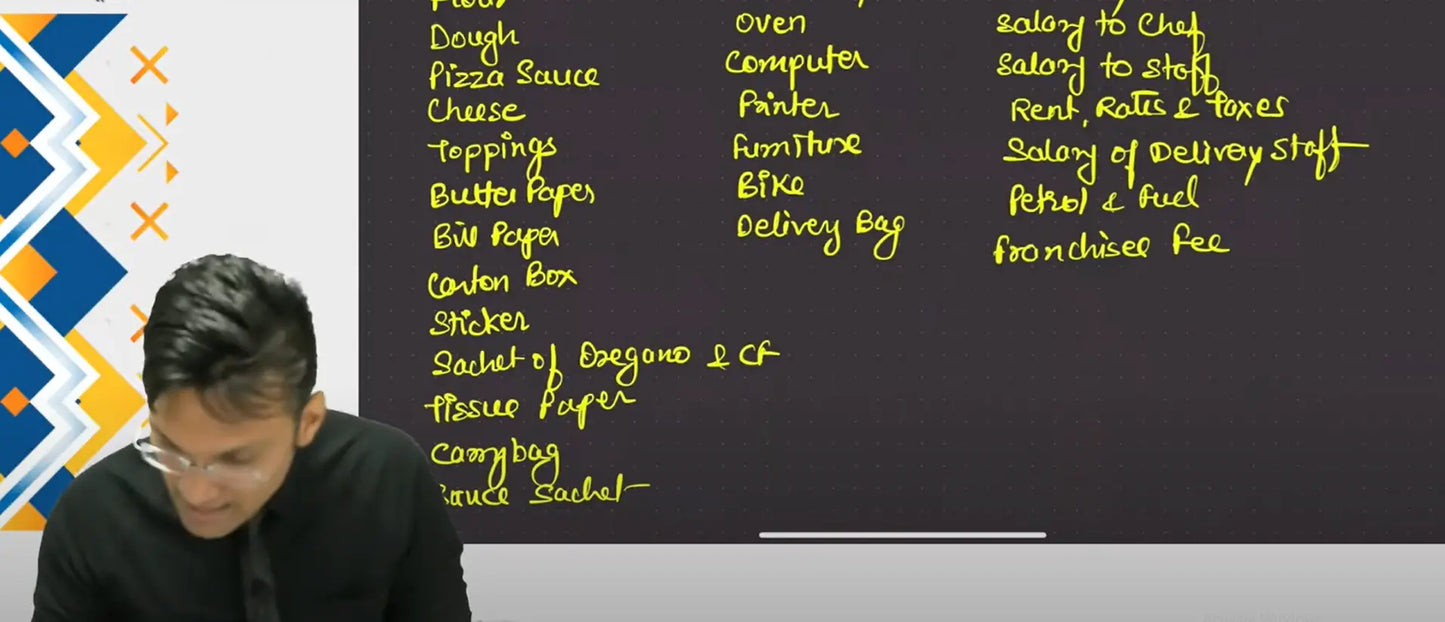 Flour
Dough
Pizza Sauce
Cheese
Toppings
Butter Paper
Bill Paper
Carton Box
Sticker
Sachet of Oregano & CF
Tissue Paper
Carrybag
Sauce Sachet
Oven
Computer
Printer
Furniture
Bike
Delivery Bag
Salary to Chef
Salary to Staff
Rent, Rates & Taxes
Salary of Delivery Staff
Petrol & Fuel
Franchisee Fee